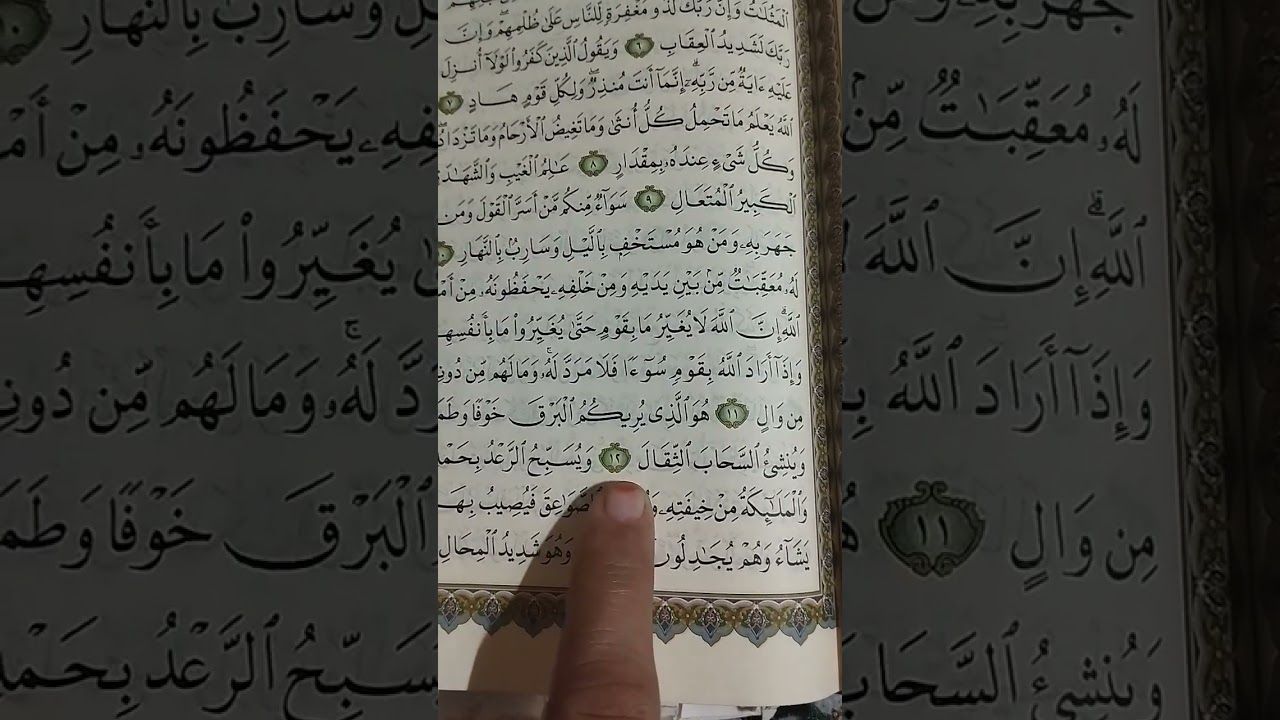 ٱلْمَثُلَٰتُ وَإِنَّ رَبَّكَ لَذُو مَغْفِرَةٍ لِّلنَّاسِ عَلَىٰ ظُلْمِهِمْ ۖ وَإِنَّ
رَبَّكَ لَشَدِيدُ ٱلْعِقَابِ ٦ وَيَقُولُ ٱلَّذِينَ كَفَرُوا۟ لَوْلَآ أُنزِلَ
عَلَيْهِ ءَايَةٌ مِّن رَّبِّهِۦٓ ۗ إِنَّمَآ أَنتَ مُنذِرٌ ۖ وَلِكُلِّ قَوْمٍ هَادٍ ٧
ٱللَّهُ يَعْلَمُ مَا تَحْمِلُ كُلُّ أُنثَىٰ وَمَا تَغِيضُ ٱلْأَرْحَامُ وَمَا تَزْدَادُ ۖ
وَكُلُّ شَىْءٍ عِندَهُۥ بِمِقْدَارٍ ٨ عَٰلِمُ ٱلْغَيْبِ وَٱلشَّهَٰدَ
ٱلْكَبِيرُ ٱلْمُتَعَالِ ٩ سَوَآءٌ مِّنكُم مَّنْ أَسَرَّ ٱلْقَوْلَ وَمَن
جَهَرَ بِهِۦ وَمَنْ هُوَ مُسْتَخْفٍۭ بِٱلَّيْلِ وَسَارِبٌۢ بِٱلنَّهَارِ
لَهُۥ مُعَقِّبَٰتٌ مِّنۢ بَيْنِ يَدَيْهِ وَمِنْ خَلْفِهِۦ يَحْفَظُونَهُۥ مِنْ أَمْ
ٱللَّهِ ۗ إِنَّ ٱللَّهَ لَا يُغَيِّرُ مَا بِقَوْمٍ حَتَّىٰ يُغَيِّرُوا۟ مَا بِأَنفُسِهِ
وَإِذَآ أَرَادَ ٱللَّهُ بِقَوْمٍ سُوٓءًا فَلَا مَرَدَّ لَهُۥ ۚ وَمَا لَهُم مِّن دُونِ
مِن وَالٍ ١١ هُوَ ٱلَّذِى يُرِيكُمُ ٱلْبَرْقَ خَوْفًا وَطَمَ
وَيُنشِئُ ٱلسَّحَابَ ٱلثِّقَالَ ١٢ وَيُسَبِّحُ ٱلرَّعْدُ بِحَمْدِ
وَٱلْمَلَٰٓئِكَةُ مِنْ خِيفَتِهِۦ ٱلصَّوَٰعِقَ فَيُصِيبُ بِهَا
يَشَآءُ وَهُمْ يُجَٰدِلُونَ وَهُوَ شَدِيدُ ٱلْمِحَالِ